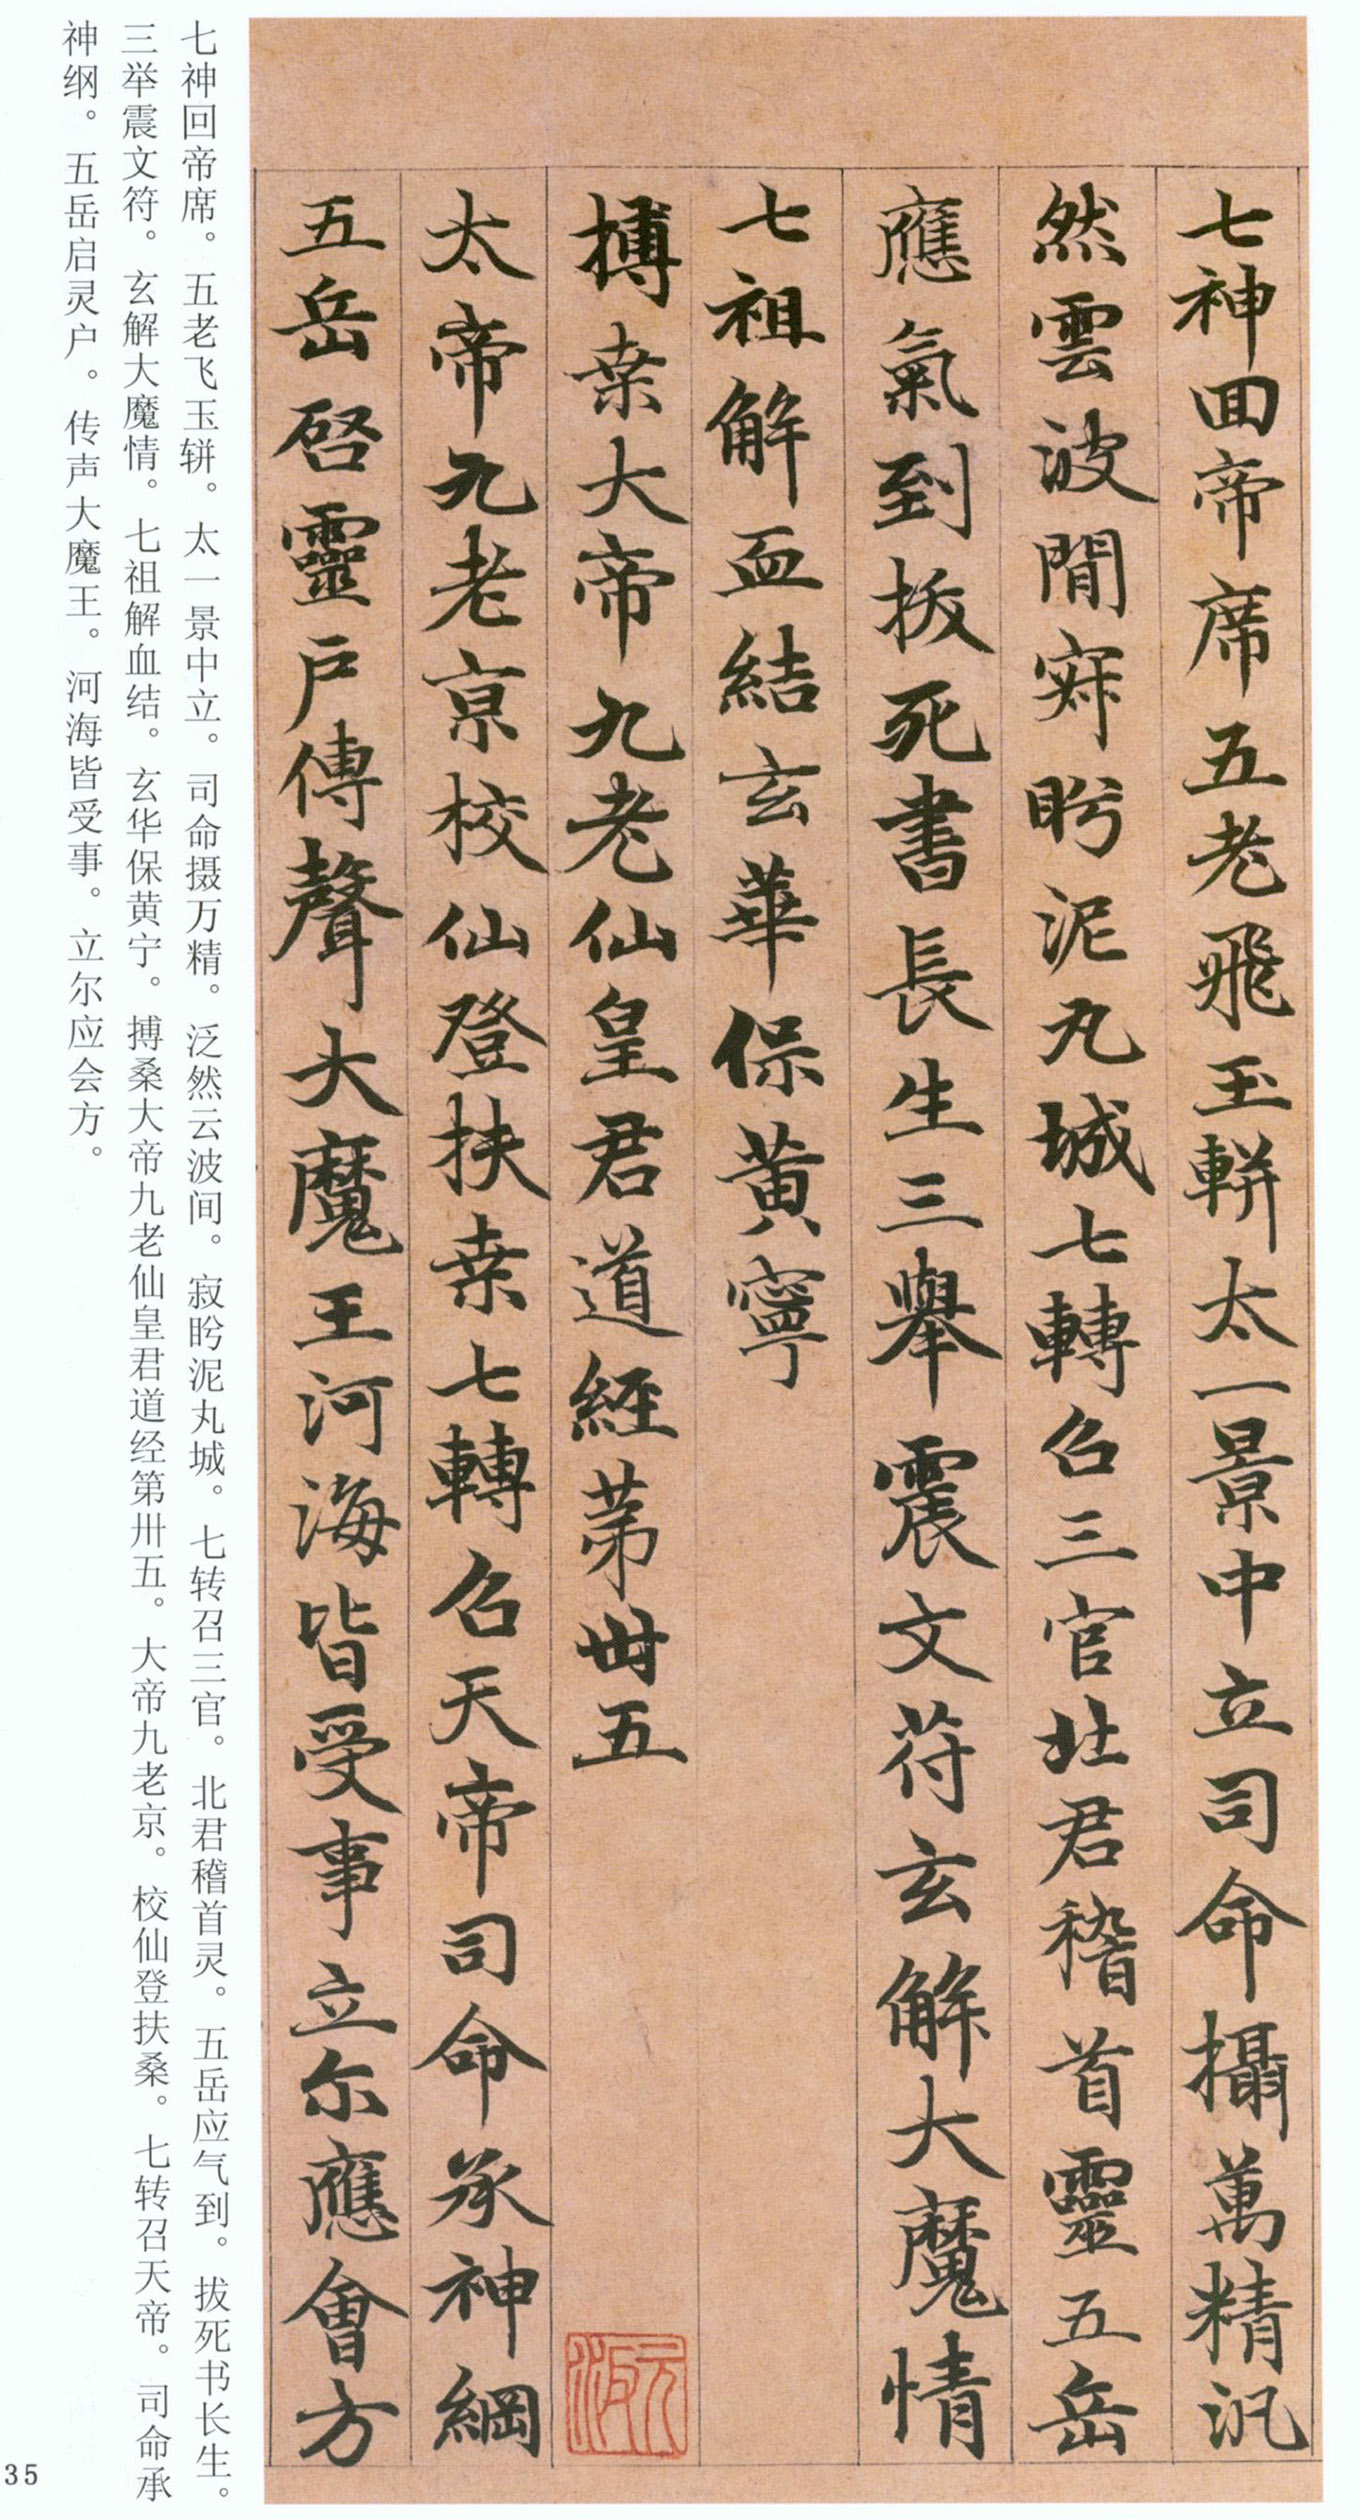 七神回帝席五老飛玉軿太一景中立司命攝萬精汎
然雲波間寂眄泥丸城七轉召三官北君稽首靈五岳
應氣到拔死書長生三舉震文符玄解大魔情
七祖解血結玄華保黃寧
搏桒大帝九老仙皇君道經第卌五
太帝九老京校仙登扶桒七轉召天帝司命承神綱
五岳啓靈戶傳聲大魔王河海皆受事立尔應會方
七神回帝席。五老飞玉軿。太一景中立。司命摄万精。泛然云波间。寂眄泥丸城。七转召三官。北君稽首灵。五岳应气到。拔死书长生。
三举震文符。玄解大魔情。七祖解血结。玄华保黄宁。搏桑大帝九老仙皇君道经第卅五。大帝九老京。校仙登扶桑。七转召天帝。司命承
神纲。五岳启灵户。传声大魔王。河海皆受事。立尔应会方。
35